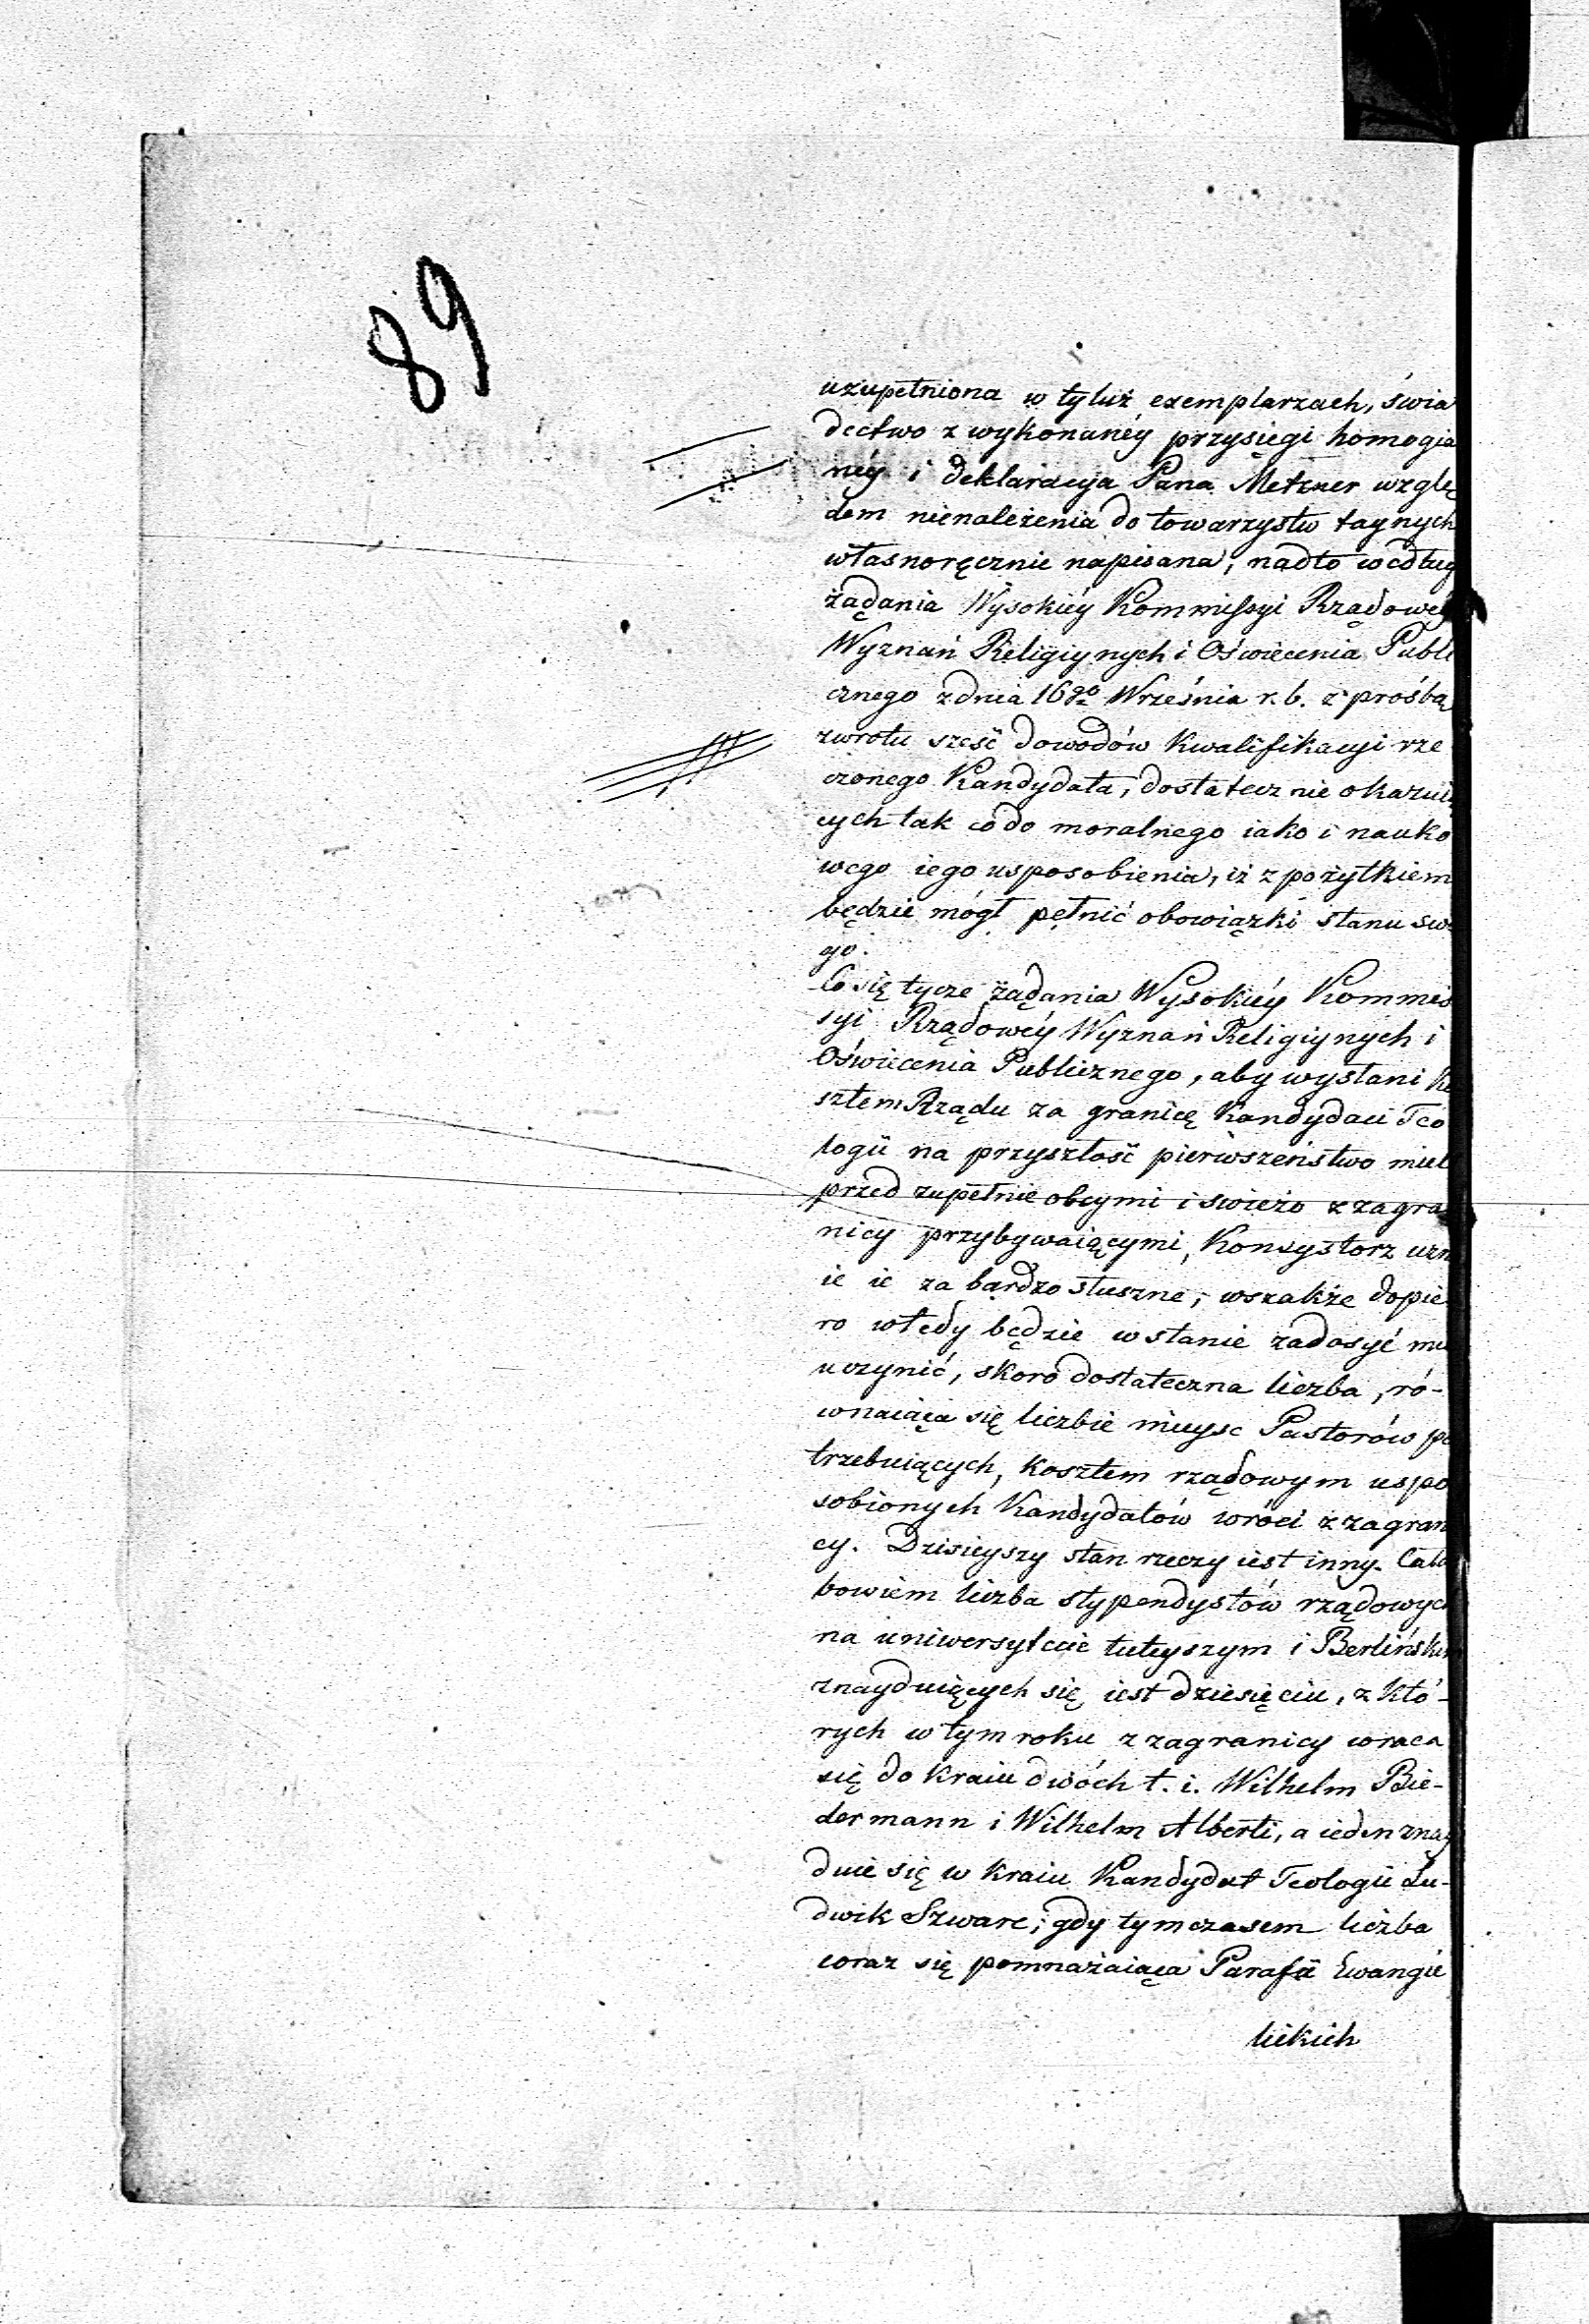 89
uzupełniona w tyluż exemplarzach, świa
dectwo z wykonanéy przysięgi homogia
néy i deklaracyja Pana Metzner wzglę
dem nienależenia do towarzystw taynych
własnoręcznie napisana, nadto według
żądania Wysokiéy Kommissyi Rządowéy
Wyznań Religiynych i Oświecenia Publi
cznego z dnia 16go Września r. b. z prośbą
zwrotu sześć dowodów kwalifikacyi rze
czonego Kandydata, dostatecznie okazuią
cych tak co do moralnego iako i nauko
wego iego usposobienia, iż z pożytkiem
będzie mógł pełnić obowiązki stanu swe
go.
Co się tycze żądania Wysokiéy Kommis
syi Rządowéy Wyznań Religiynych i
Oświecenia Publicznego, aby wysłani ko
sztem Rządu za granicę Kandydaci Teo
logii na przyszłość pierwszeństwo mieli
przed zupełnie obcymi i swieżo z zagra
nicy przybywaiącymi, Konsystorz uzna
ie ie za bardzo słuszne; wszakże dopie
ro wtedy będzie w stanie zadosyć mu
uczynić, skoro dostateczna liczba, ró-
wnaiąca się liczbie mieysc Pastorów po
trzebuiących, kosztem rządowym uspo
sobionych Kandydatów wróci z zagrani
cy. Dzisieyszy stan rzeczy iest inny. Cała
bowiem liczba stypendystów rządowych
na uniwersytecie tuteyszym i Berlińskim
znayduiących się iest dziesięciu, z któ-
rych w tym roku z zagranicy wraca
się do kraiu dwóch t. i. Wilhelm Bie-
dermann i Wilhelm Alberti, a ieden znay
duie się w kraiu Kandydat Teologii Lu-
dwik Szwarc; gdy tymczasem liczba
coraz się pomnażaiąca Parafii Ewangie
lickich